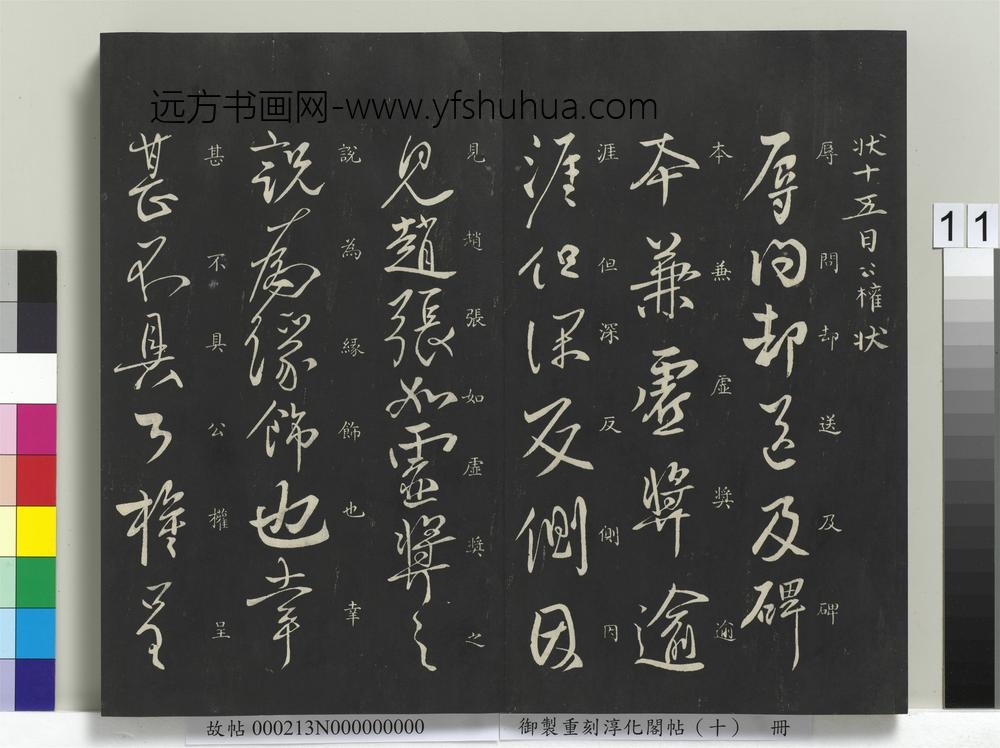 远方书画网-www.yfshuhua.com
状十五日公權状
辱問却送及碑
辱問却送及碑
本蒹虚奬逾
本兼虚奬逾
涯但深反側因
涯但深反側因
見趙張如虚奬之
見趙張如虚奬之
說為縁飾也幸
說為縁飾也幸
甚不具公權呈
甚不具公權呈
11
故帖 000213N000000000
御製重刻淳化閣帖（十） 冊